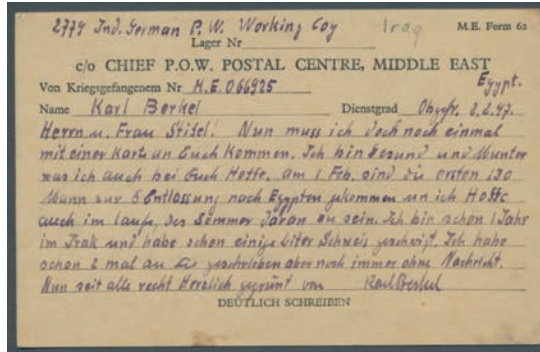 2779 Ind. German P. W. Working Coy Iraq M.E. Form 62
Lager Nr
c/o CHIEF P.O.W. POSTAL CENTRE, MIDDLE EAST
Von Kriegsgefangenem Nr M.E. 066925 Egypt.
Name Karl Berkel Dienstgrad Obgefr. 2.2.47.
Herrn u. Frau Stifel! Nun muss ich doch noch einmal
mit einer Karte an Euch kommen. Ich bin Gesund und Munter
was ich auch bei Euch Hoffe. am 1 Feb. sind die ersten 130
Mann zur Entlassung nach Egypten gekommen un ich Hoffe
auch im laufe des Sommer daran zu sein. Ich bin schon 1 Jahr
im Irak und habe schon einige liter Schweis geschwizt. Ich habe
schon 2 mal an geschrieben aber noch immer ohne Nachricht.
Nun seit alle recht Herzlich gegrüst von Karl Berkel
DEUTLICH SCHREIBEN